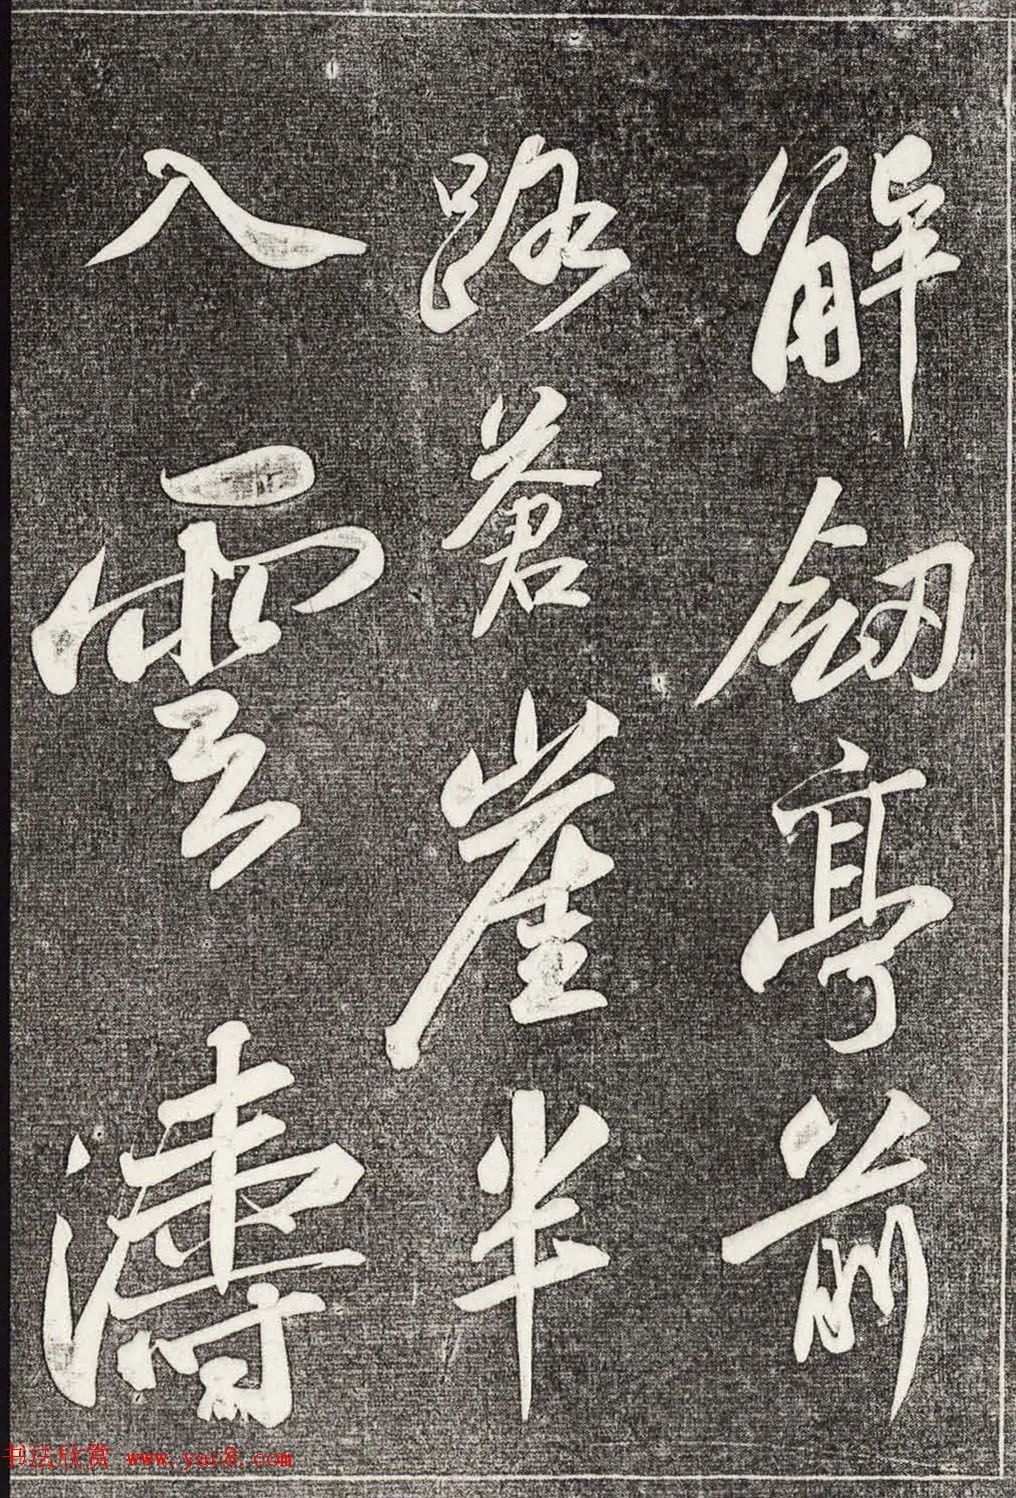 解劔亭前
路蒼崖半
入雲濤
书法欣赏 www.yac8.com